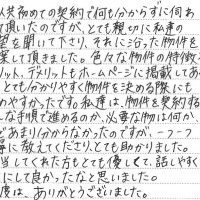 人共初めての契約で何も分からずに伺わ
て頂いたのですが、とても親切に私達の
望を聞いて下さり、それに沿った物件を
案して頂きました。色々な物件の特徴や
リット、デメリットもホームページに掲載してあ
とても分かりやすく物件を決める際にも
めやすかったです。私達は、物件を契約する
んな手順で進めるのか、必要な物は何か、
どあまり分からなかったのですが、一つ一つ
寧に教えてくださり、とても助かりました。
当してくれた方もとても優しくて、話しやすく
にして良かったなと思いました。
度は、ありがとうございました。